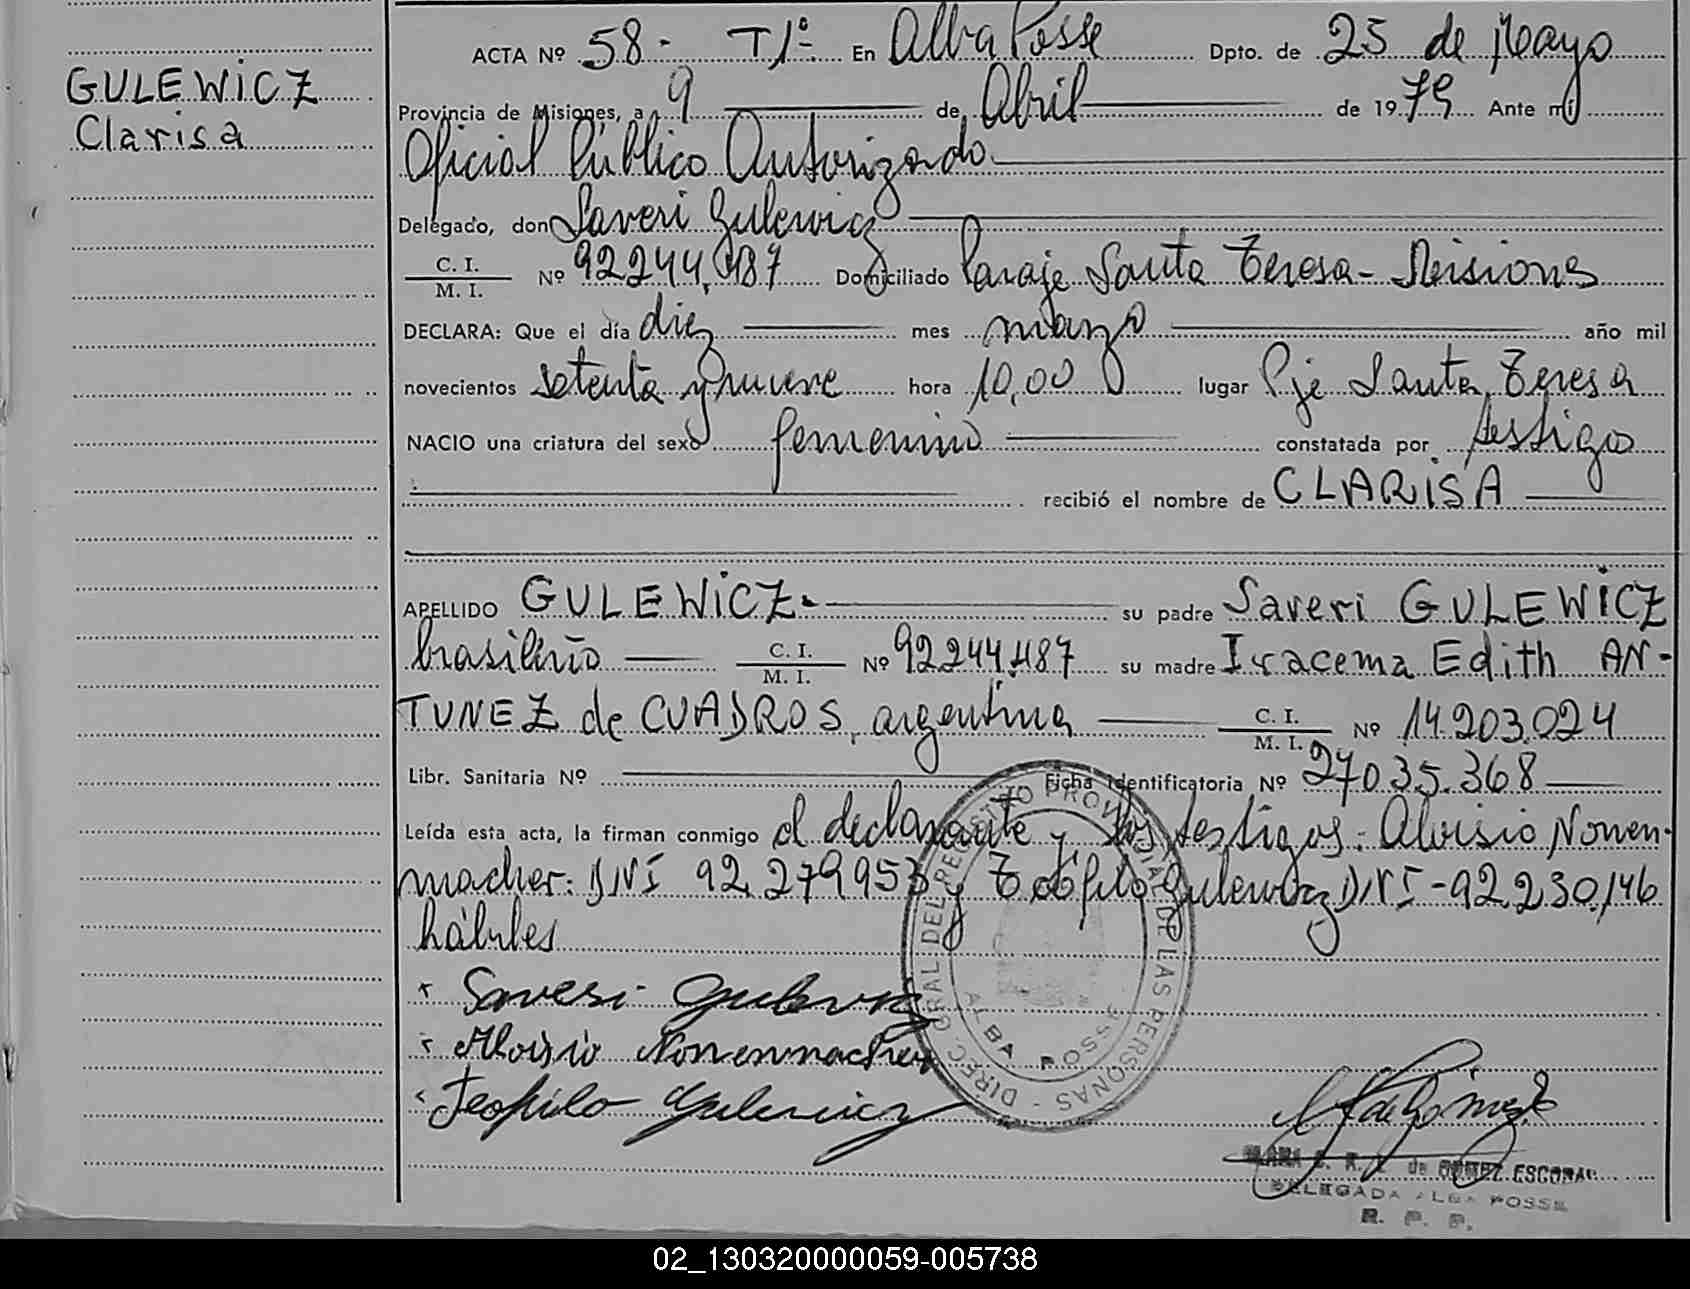 GULEWICZ
Clarisa
ACTA Nº 58.- T1º.- En Alba Posse Dpto. de 25 de Mayo
Provincia de Misiones, a 9 de Abril de 1979 Ante mí
Oficial Público Autorizado
Delegado, don Saveri Gulewicz
C. I. / M. I. Nº 92.244.487 Domiciliado Paraje Santa Teresa - Misiones
DECLARA: Que el día diez mes marzo año mil
novecientos setenta y nueve hora 10,00 lugar Pje Santa Teresa
NACIO una criatura del sexo femenino constatada por testigo
recibió el nombre de CLARISA
APELLIDO GULEWICZ.- su padre Saveri GULEWICZ
brasileño C. I. / M. I. Nº 92244.487 su madre Iracema Edith AN-
TUNEZ de CUADROS, argentina C. I. / M. I. Nº 14.203.024
Libr. Sanitaria Nº Ficha Identificatoria Nº 27035.368
Leída esta acta, la firman conmigo el declarante y los testigos: Aloisio Nonen-
macher: DNI 92.279953 y Teófilo Gulewicz DNI - 92.230.146
hábiles
Saveri Gulewicz
Aloisio Nonenmacher
Teofilo Gulewicz
DIREC. GRAL DEL REGISTRO PROVINCIAL DE LAS PERSONAS -
ALBA POSSE
de GOMEZ ESCOBAR
DELEGADA ALBA POSSE
R. P. P.
02_130320000059-005738